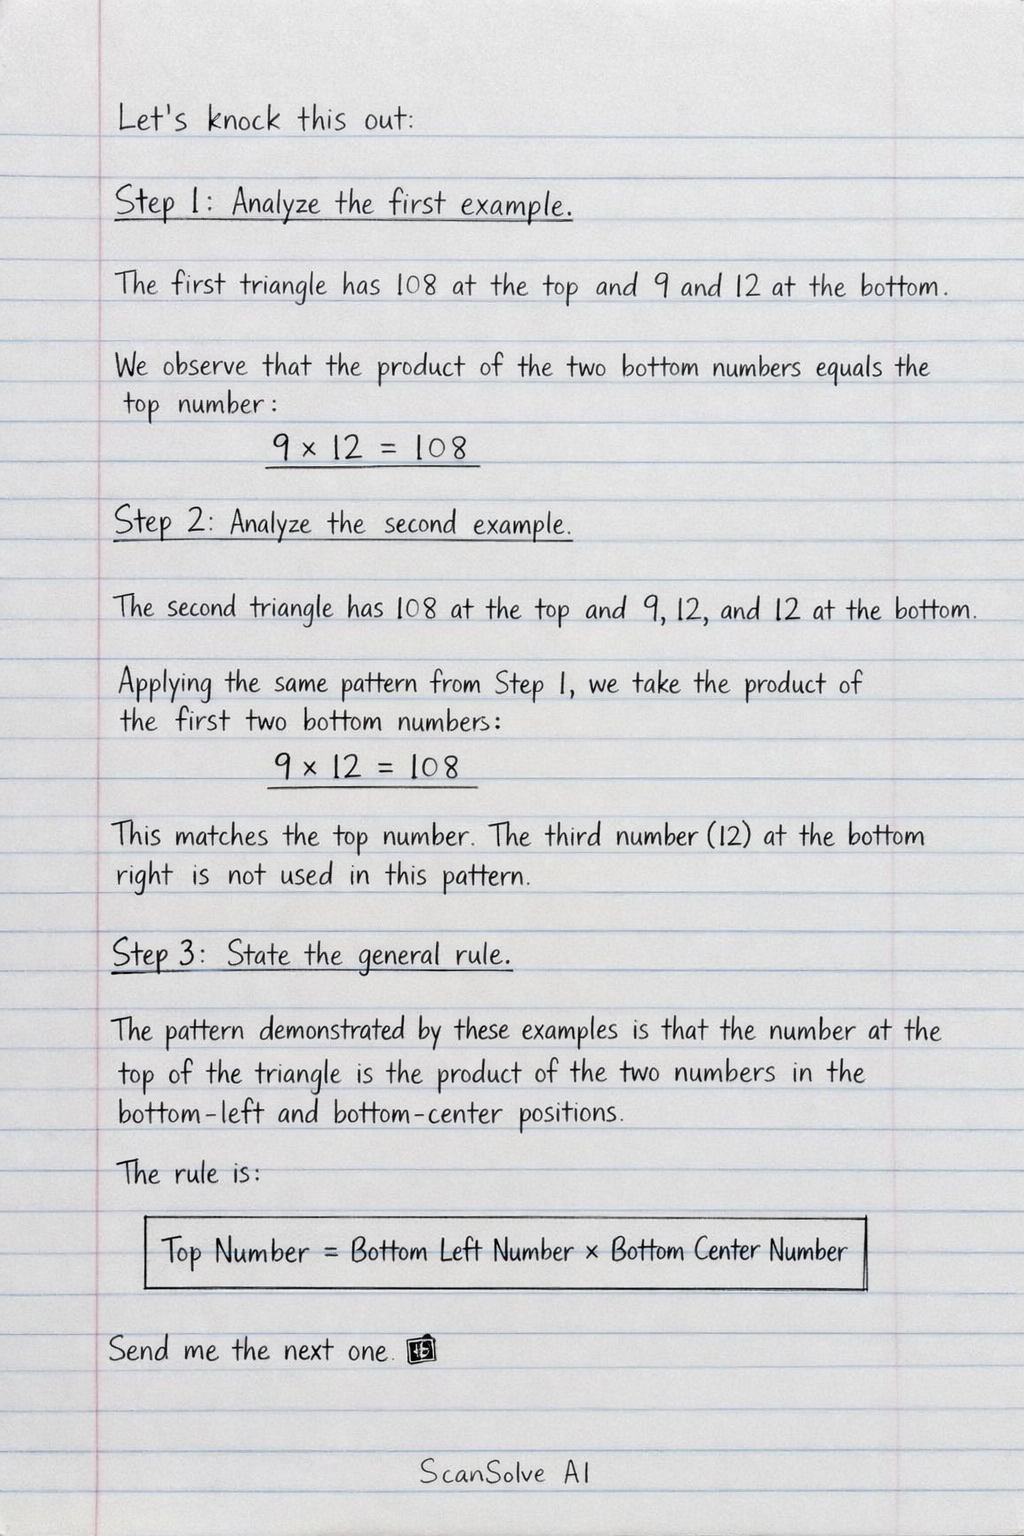 Let's knock this out:
Step 1: Analyze the first example.
The first triangle has 108 at the top and 9 and 12 at the bottom.
We observe that the product of the two bottom numbers equals the
top number:
9 × 12 = 108
Step 2: Analyze the second example.
The second triangle has 108 at the top and 9, 12, and 12 at the bottom.
Applying the same pattern from Step 1, we take the product of
the first two bottom numbers:
9 × 12 = 108
This matches the top number. The third number (12) at the bottom
right is not used in this pattern.
Step 3: State the general rule.
The pattern demonstrated by these examples is that the number at the
top of the triangle is the product of the two numbers in the
bottom-left and bottom-center positions.
The rule is:
Top Number = Bottom Left Number × Bottom Center Number
Send me the next one.
ScanSolve AI